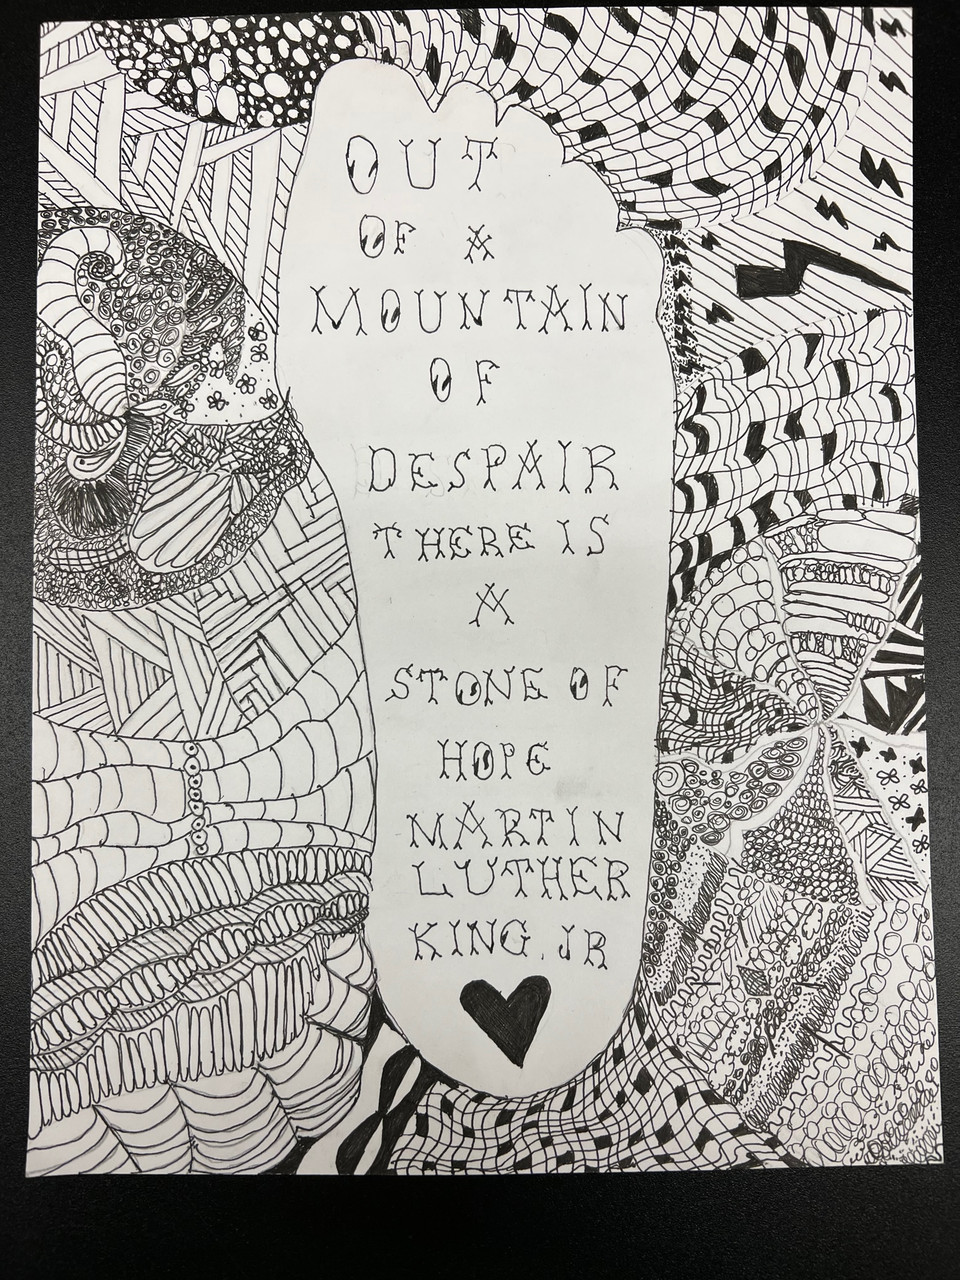 OUT
OF A
MOUNTAIN
OF
DESPAIR
THERE IS
A
STONE OF
HOPE
MARTIN
LUTHER
KING, JR